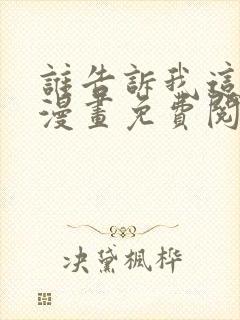 誰告訴我這
漫畫免費閱
決黛楓桦